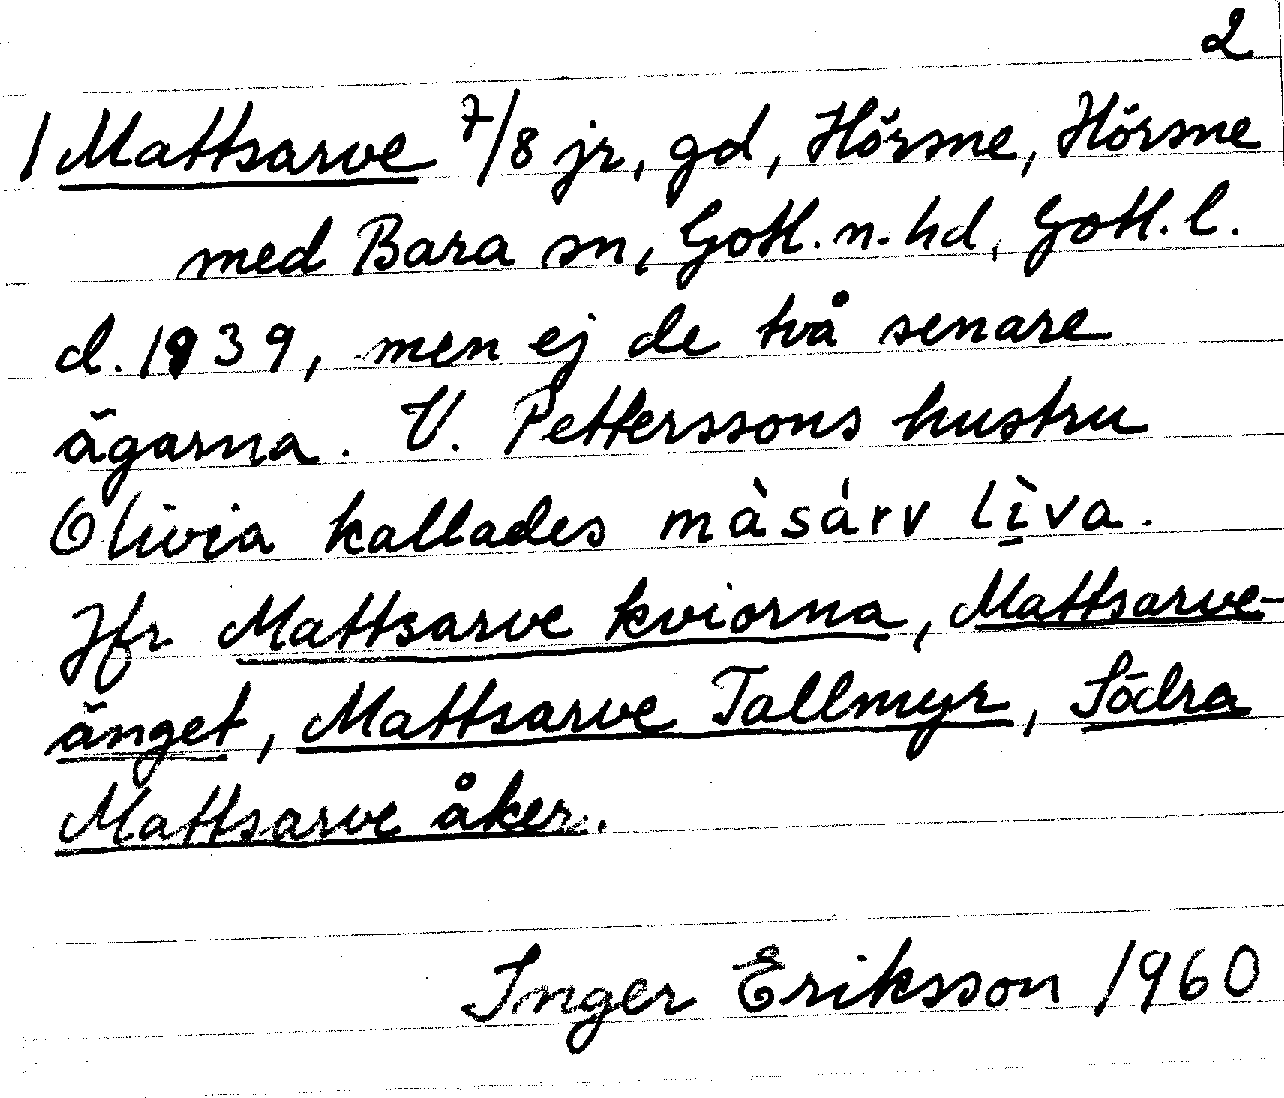 2
1 Mattsarve 7/8 jr, gd, Hörsne, Hörsne
med Bara sn, Gotl. n. hd, Gotl. l.
d. 1939, men ej de två senare
ägarna. V. Petterssons hustru
Olivia kallades màsárv lìva.
Jfr Mattsarve kviorna, Mattsarve-
änget, Mattsarve Tallmyr, Södra
Mattsarve åker.
Inger Eriksson 1960